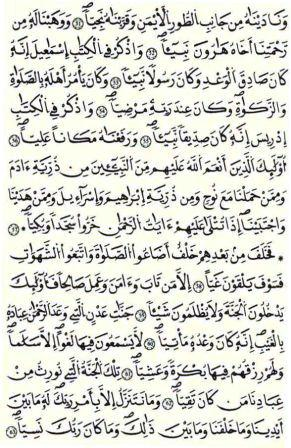 وَنَٰدَيْنَٰهُ مِن جَانِبِ الطُّورِ الْأَيْمَنِ وَقَرَّبْنَٰهُ نَجِيّاً وَوَهَبْنَا لَهُۥ مِن
رَّحْمَتِنَا أَخَاهُ هَٰرُونَ نَبِيٓـٔاً وَاذْكُرْ فِي الْكِتَٰبِ إِسْمَٰعِيلَ إِنَّهُۥ
كَانَ صَادِقَ الْوَعْدِ وَكَانَ رَسُولاً نَّبِيٓـٔاً وَكَانَ يَأْمُرُ أَهْلَهُۥ بِالصَّلَوٰةِ
وَالزَّكَوٰةِ وَكَانَ عِندَ رَبِّهِۦ مَرْضِيّاً وَاذْكُرْ فِي الْكِتَٰبِ
إِدْرِيسَ إِنَّهُۥ كَانَ صِدِّيقاً نَّبِيٓـٔاً وَرَفَعْنَٰهُ مَكَاناً عَلِيّاً
أُوْلَٰٓئِكَ الَّذِينَ أَنْعَمَ اللَّهُ عَلَيْهِم مِّنَ النَّبِيٓـِٕينَ مِن ذُرِّيَّةِ ءَادَمَ
وَمِمَّنْ حَمَلْنَا مَعَ نُوحٍ وَمِن ذُرِّيَّةِ إِبْرَٰهِيمَ وَإِسْرَآءِيلَ وَمِمَّنْ هَدَيْنَا
وَاجْتَبَيْنَا إِذَا تُتْلَىٰ عَلَيْهِمْ ءَايَٰتُ الرَّحْمَٰنِ خَرُّوا۟ سُجَّداً وَبُكِيّاً
فَخَلَفَ مِن بَعْدِهِمْ خَلْفٌ أَضَاعُوا۟ الصَّلَوٰةَ وَاتَّبَعُوا۟ الشَّهَوَٰتِ
فَسَوْفَ يَلْقَوْنَ غَيّاً إِلَّا مَن تَابَ وَءَامَنَ وَعَمِلَ صَٰلِحاً فَأُوْلَٰٓئِكَ
يَدْخُلُونَ الْجَنَّةَ وَلَا يُظْلَمُونَ شَيْـٔاً جَنَّٰتِ عَدْنٍ الَّتِي وَعَدَ الرَّحْمَٰنُ عِبَادَهُۥ
بِالْغَيْبِ إِنَّهُۥ كَانَ وَعْدُهُۥ مَأْتِيّاً لَّا يَسْمَعُونَ فِيهَا لَغْواً إِلَّا سَلَٰماً
وَلَهُمْ رِزْقُهُمْ فِيهَا بُكْرَةً وَعَشِيّاً تِلْكَ الْجَنَّةُ الَّتِي نُورِثُ مِنْ
عِبَادِنَا مَن كَانَ تَقِيّاً وَمَا نَتَنَزَّلُ إِلَّا بِأَمْرِ رَبِّكَ لَهُۥ مَا بَيْنَ
أَيْدِينَا وَمَا خَلْفَنَا وَمَا بَيْنَ ذَٰلِكَ وَمَا كَانَ رَبُّكَ نَسِيّاً